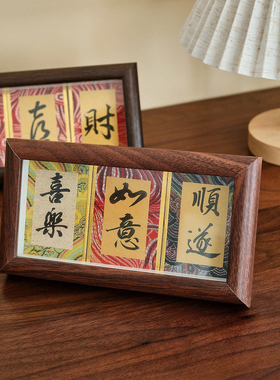 財
喜樂
如意
順遂